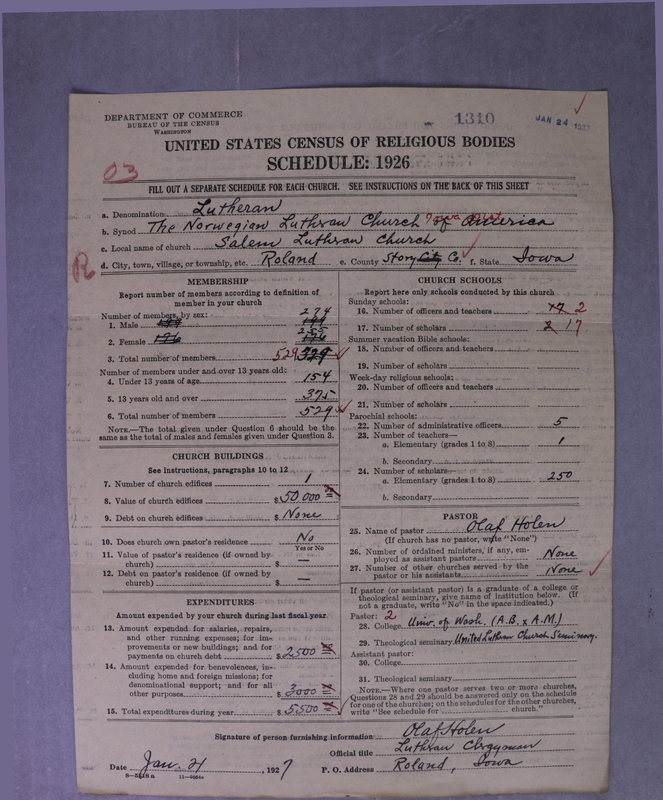 DEPARTMENT OF COMMERCE
BUREAU OF THE CENSUS
WASHINGTON
1310
JAN 24 1927
UNITED STATES CENSUS OF RELIGIOUS BODIES
SCHEDULE: 1926
03
FILL OUT A SEPARATE SCHEDULE FOR EACH CHURCH. SEE INSTRUCTIONS ON THE BACK OF THIS SHEET
a. Denomination Lutheran
b. Synod The Norwegian Luthran Church of America
c. Local name of church Salem Luthran Church
R
d. City, town, village, or township, etc. Roland e. County Story City Co. f. State Iowa
MEMBERSHIP
Report number of members according to definition of
member in your church
Number of members, by sex:
1. Male 274
2. Female 255
3. Total number of members 529 329
Number of members under and over 13 years old:
4. Under 13 years of age 154
5. 13 years old and over 375
6. Total number of members 529
NOTE.—The total given under Question 6 should be the
same as the total of males and females given under Question 3.
CHURCH BUILDINGS
See instructions, paragraphs 10 to 12
7. Number of church edifices 1
8. Value of church edifices $ 50,000
9. Debt on church edifices $ None
10. Does church own pastor's residence No
Yes or No
11. Value of pastor's residence (if owned by
church) $ —
12. Debt on pastor's residence (if owned by
church) $ —
EXPENDITURES
Amount expended by your church during last fiscal year
13. Amount expended for salaries, repairs,
and other running expenses; for im-
provements or new buildings; and for
payments on church debt $ 2500
14. Amount expended for benevolences, in-
cluding home and foreign missions; for
denominational support; and for all
other purposes $ 3000
15. Total expenditures during year $ 5,500
CHURCH SCHOOLS
Report here only schools conducted by this church
Sunday schools:
16. Number of officers and teachers 17 2
17. Number of scholars 2 17
Summer vacation Bible schools:
18. Number of officers and teachers
19. Number of scholars
Week-day religious schools:
20. Number of officers and teachers
21. Number of scholars
Parochial schools:
22. Number of administrative officers 5
23. Number of teachers—
a. Elementary (grades 1 to 8) 1
b. Secondary
24. Number of scholars—
a. Elementary (grades 1 to 8) 250
b. Secondary
PASTOR
25. Name of pastor Olaf Holen
(If church has no pastor, write "None")
26. Number of ordained ministers, if any, em-
ployed as assistant pastors None
27. Number of other churches served by the
pastor or his assistants None
If pastor (or assistant pastor) is a graduate of a college or
theological seminary, give name of institution below. (If
not a graduate, write "No" in the space indicated.)
Pastor: 2
28. College Univ. of Wash. (A.B. & A.M.)
29. Theological seminary United Luthran Church Seminary.
Assistant pastor:
30. College
31. Theological seminary
NOTE.—Where one pastor serves two or more churches,
Questions 28 and 29 should be answered only on the schedule
for one of the churches; on the schedules for the other churches,
write "See schedule for church."
Signature of person furnishing information Olaf Holen
Official title Luthran Clergyman
Date Jan. 21, 1927 P. O. Address Roland, Iowa